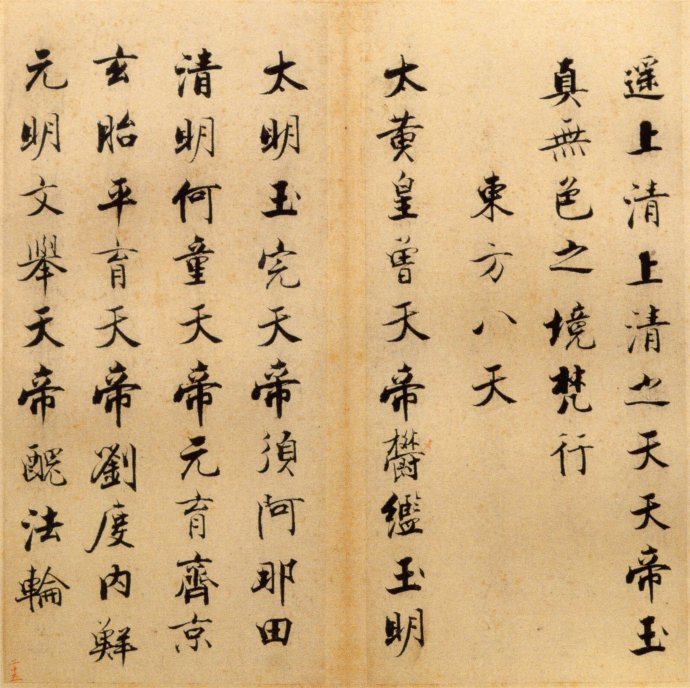 遥上清上清之天天帝玉
真無色之境梵行
東方八天
太黄皇曾天帝欝鑑玉明
太明玉完天帝須阿那田
清明何童天帝元育齊京
玄胎平育天帝劉度内鮮
元明文舉天帝醜法輪
二十五